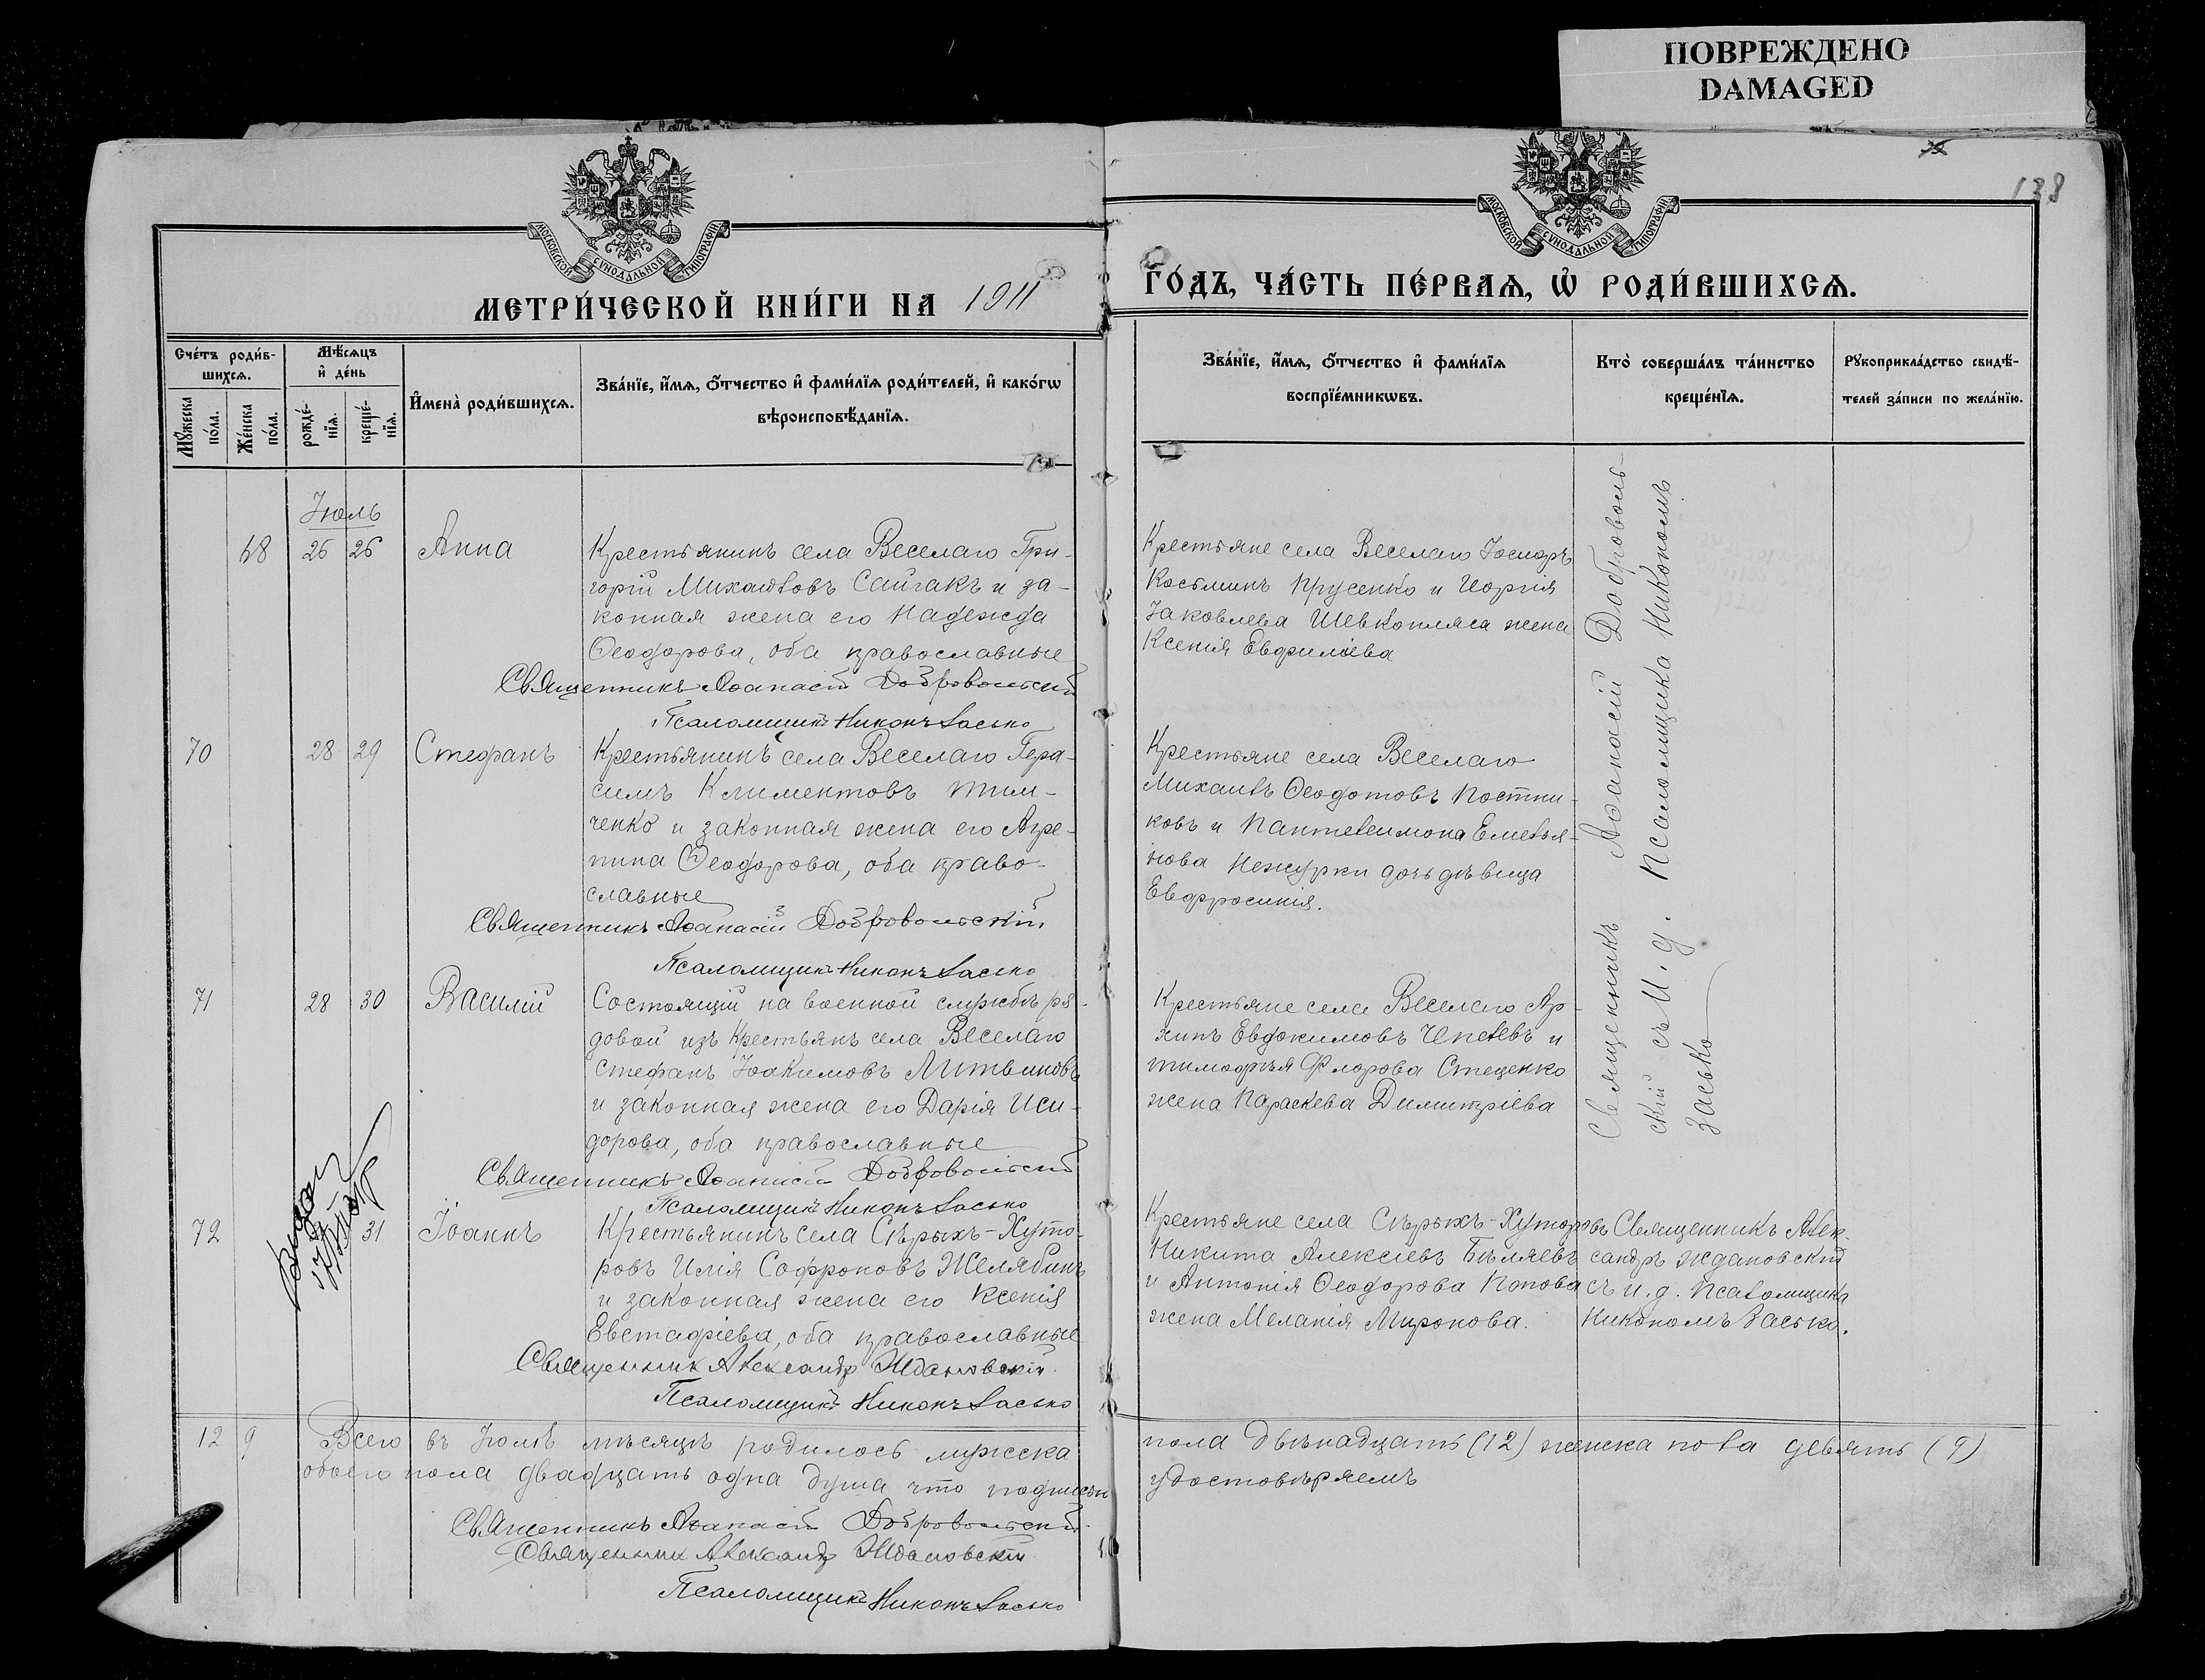 ПОВРЕЖДЕНО
DAMAGED
138
МОСКОВСКОЙ СѴНОДАЛЬНОЙ ТИПОГРАФІИ
МОСКОВСКОЙ СѴНОДАЛЬНОЙ ТИПОГРАФІИ
МЕТРИ́ЧЕСКОЙ КНИ́ГИ НА 1911
ГО́ДЪ, ЧА́СТЬ ПЕ́РВАѦ, Ѡ҆ РОДИ́ВШИХСѦ.
Сче́тъ роди́в-
шихсѧ.
Мꙋ́жеска
по́ла.
Же́нска
по́ла.
Мѣ́сѧцъ
и҆ де́нь
рожде́-
нїѧ.
креще́-
нїѧ.
И҆мена̀ роди́вшихсѧ.
Зва́нїе, и҆́мѧ, ѻ҆́тчество и҆ фами́лїѧ роди́телей, и҆ како́гѡ
вѣроисповѣ́данїѧ.
Зва́нїе, и҆́мѧ, ѻ҆́тчество и҆ фами́лїѧ
воспрїе́мникѡвъ.
Кто̀ соверша́лъ та́инство
креще́нїѧ.
Рꙋкоприкла́дство свидѣ́-
телей за́писи по жела́нїю.
Іюль
68 25 26 Анна
Крестьянинъ села Веселаго Гри-
горій Михаиловъ Сайгакъ и за-
конная жена его Надежда
Ѳеодорова, оба православные
Священникъ Аѳанасій Добровольскій
Псаломщикъ Никонъ Засько
Крестьяне села Веселаго
Косьминъ Прусенко и
Іаковлева Шевкопляса жена
Ксенія
70 28 29 Стефанъ
Крестьянинъ села Веселаго Гера-
симъ Климентовъ Тим-
ченко и законная жена его Агре-
пина Ѳеодорова, оба право-
славные
Священникъ Аѳанасій Добровольскій
Псаломщикъ Никонъ Засько
Крестьяне села Веселаго
Михаилъ Ѳеодотовъ Постни-
ковъ и Пантелеимона Емелья-
нова Нежурки дочь дѣвица
Евфросинія.
71 28 30 Василій
Состоящій на военной службѣ ря-
довой изъ крестьянъ села Веселаго
Стефанъ Іоакимовъ Литвиновъ
и законная жена его Дарія Иси-
дорова, оба православные
Священникъ Аѳанасій Добровольскій
Псаломщикъ Никонъ Засько
Крестьяне села Веселаго Ар-
хипъ Евдокимовъ Чепелевъ и
Тимофея Флорова Стеценко
жена Параскева Димитріева
Священникъ Аѳанасій Доброволь-
скій съ И. д. Псаломщика Никономъ
Засько
72 31 Іоаннъ
Крестьянинъ села Сѣрыхъ-Хуто-
ровъ Илія Софроновъ Желябинъ
и законная жена его Ксенія
Евстафіева, оба православные
Священникъ Александръ Ждановскій
Псаломщикъ Никонъ Засько
Крестьяне села Сѣрыхъ-Хуторовъ
Никита Алексіевъ Бѣляевъ
и Антонія Ѳеодорова Попова
жена Меланія Миронова.
Священникъ Алек-
сандръ Ждановскій
съ и. д. псаломщика
Никономъ Засько.
12 9 Всего въ Іюлѣ мѣсяцѣ родилось мужеска
пола двѣнадцать (12) женска пола девять (9)
обоего пола двадцать одна душа что подписью
удостовѣряемъ
Священникъ Аѳанасій Добровольскій
Священникъ Александръ Ждановскій
Псаломщикъ Никонъ Засько